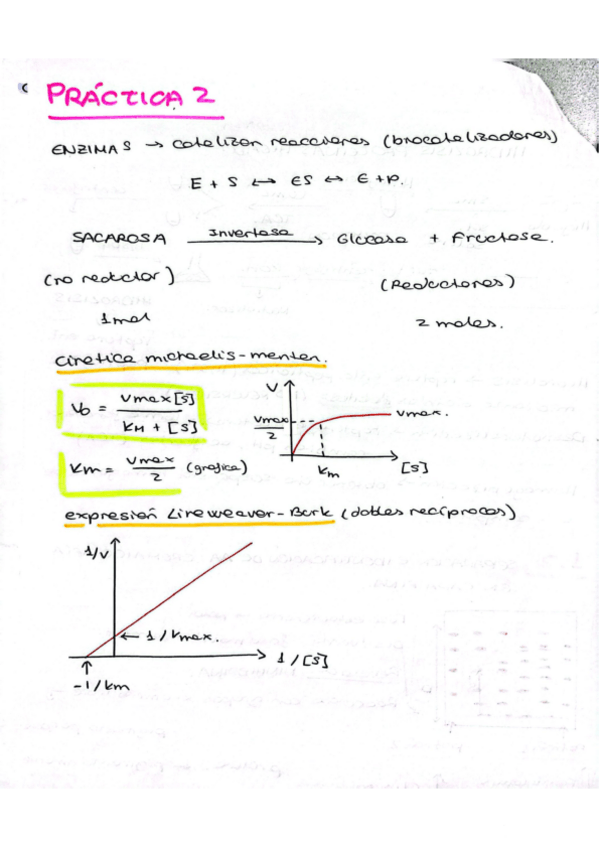 PRÁCTICA 2
ENZIMAS → catalizan reacciones (biocatalizadores)
E + S ↔ ES ↔ E + P.
SACAROSA Invertasa → Glucosa + Fructosa.
(no reductor) (Reductores)
1 mol 2 moles.
cinética michaelis-menten.
V₀ = Vmax[S] / KM + [S]
Km = Vmax / 2 (grafica)
V
Vmax / 2
Vmax.
Km
[S]
expresión Lineweaver-Burk (dobles recíprocos)
1/V
← 1/Vmax.
1/[S]
-1/km